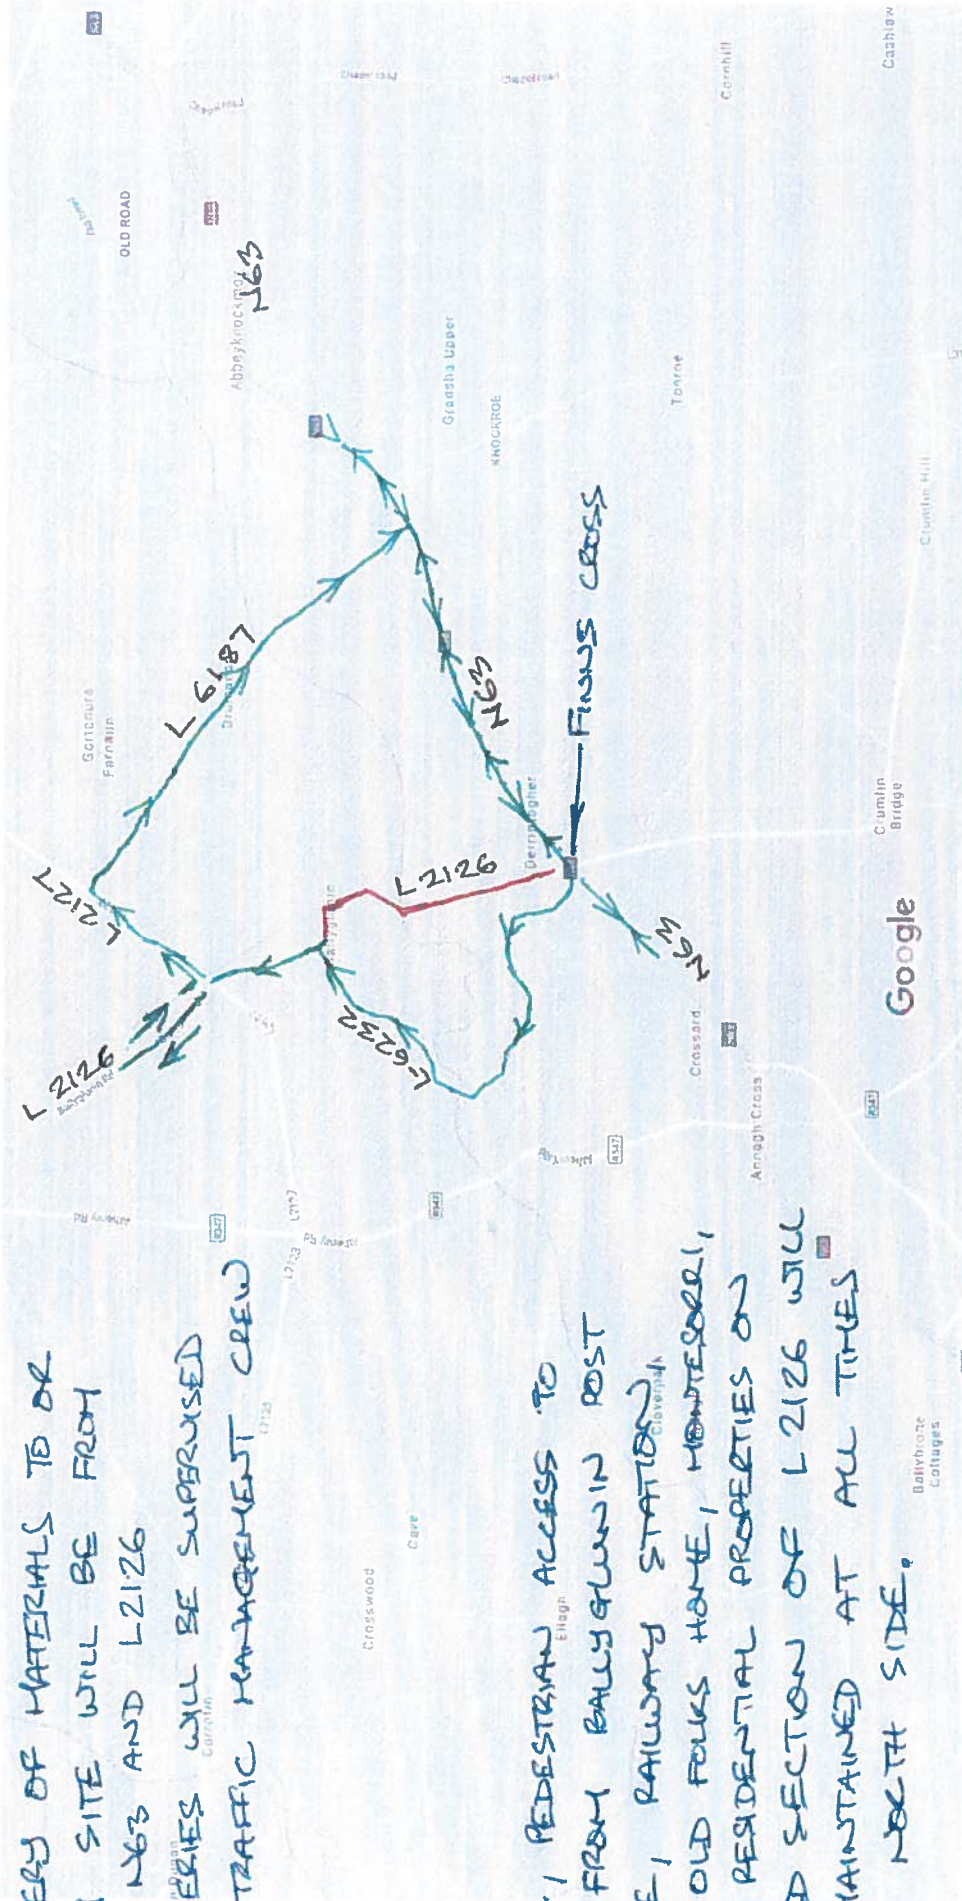 ERY OF MATERIALS TO OR
SITE WILL BE FROM
N63 AND L2126
ERIES WILL BE SUPERVISED
TRAFFIC MANAGEMENT CREW
, PEDESTRIAN ACCESS TO
FROM BALLYGLUNIN POST
E, RAILWAY STATION,
OLD FOLKS HOME, MONTESORRI,
RESIDENTIAL PROPERTIES ON
D SECTION OF L2126 WILL
MAINTAINED AT ALL TIMES
NORTH SIDE.
L 2126
L 2127
L 6187
L-6232
L 2126
N63
N63
N63
FINNS CROSS
OLD ROAD
Abbeyknockmoy
Graigsha Upper
KNOCKROE
Tonroe
Cornhill
Cashlaw
Crumlin Hill
Crumlin
Bridge
Farnaun
Crossard
Annagh Cross
R347
R347
R347
L2127
Cave
Crosswood
Ellagh
Cloverpark
Ballybrone
Cottages
Google